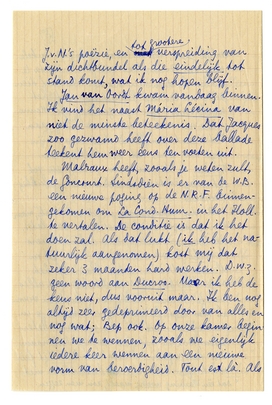 J.v.N's poëzie, en tot grootere verspreiding van
zijn dichtbundel als die eindelijk tot
stand komt, wat ik nog hopen blijf.
Jan van Oorst kwam vanbaag binnen.
Ik vind het naast Maria Lécina van
niet de minste beteekenis. Dat Jacques
zoo gezwamd heeft over deze Ballade
teekent hem weer eens ten voeten uit.
Malraux heeft, zooals je weten zult,
de Goncourt. Sindsdien is er van de W.B.
een nieuwe poging op de N.R.F. binnen-
gekomen om La Cond. Hum. in het Holl.
te vertalen. De conditie is dat ik het
doen zal. Als dat lukt (ik heb het na-
tuurlijk aangenomen) kost mij dat
zeker 3 maanden hard werken. D.w.z.
geen woord aan Ducroo. Maar ik heb de
keus niet, dus vooruit maar. Ik ben nog
altijd zeer gedeprimeerd door van alles en
nog wat; Bep ook. Op onze kamer begin-
nen we te wennen, zooals we eigenlijk
iedere keer wennen aan een nieuwe
vorm van beroerdigheid. Tout est là. Als